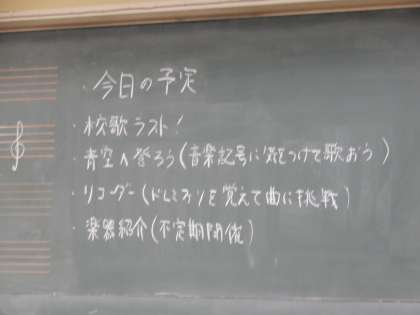 ・今日の予定
・校歌ラスト!
・青空へ登ろう(音楽記号に気をつけて歌おう)
・リコーダー(ドレミファソを覚えて曲に挑戦)
・楽器紹介(不定期開催)